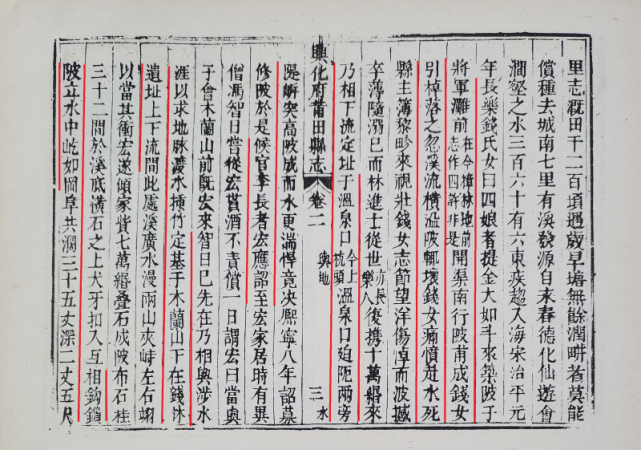 里志溉田千二百頃遇歲旱塘無餘潤畊者莫能
償種去城南七里有溪發源自永春德化仙遊會
澗壑之水三百六十有六東疾趨入海宋治平元
年長樂錢氏女曰四娘者提金大如斗來築陂于
將軍灘前在今樟林地前志作四許非是開渠南行陂甫成錢女
引棹落之忽溪流橫溢陂輒壞錢女痛憤赴水死
縣主簿黎畛來視壯錢女志節望洋傷悼而波撼
卒薄隨溺已而林進士從世亦長樂人復携十萬緡來
乃相下流定址于溫泉口今上杭頭與地溫泉口廹阨兩旁
興化府莆田縣志 卷二 三 水
隄嶄突高陂成而水更湍悍竟決熙寧八年詔募
修陂於是候官李長者宏應詔至宏家居時有異
僧馮智日當從宏貰酒不責償一日謂宏曰當與
于會木蘭山前旣宏來智日已先在乃相與涉水
涯以求地脉濺水揷竹定基于木蘭山下在錢林
遺址上下流間此處溪廣水漫兩山夾峙左右翊
以當其衝宏遂傾家貲七萬緡疊石成陂布石柱
三十二間於溪底橫石之上犬牙扣入互相鈎鎖
陂立水中屹如岡阜共濶三十五丈深二丈五尺